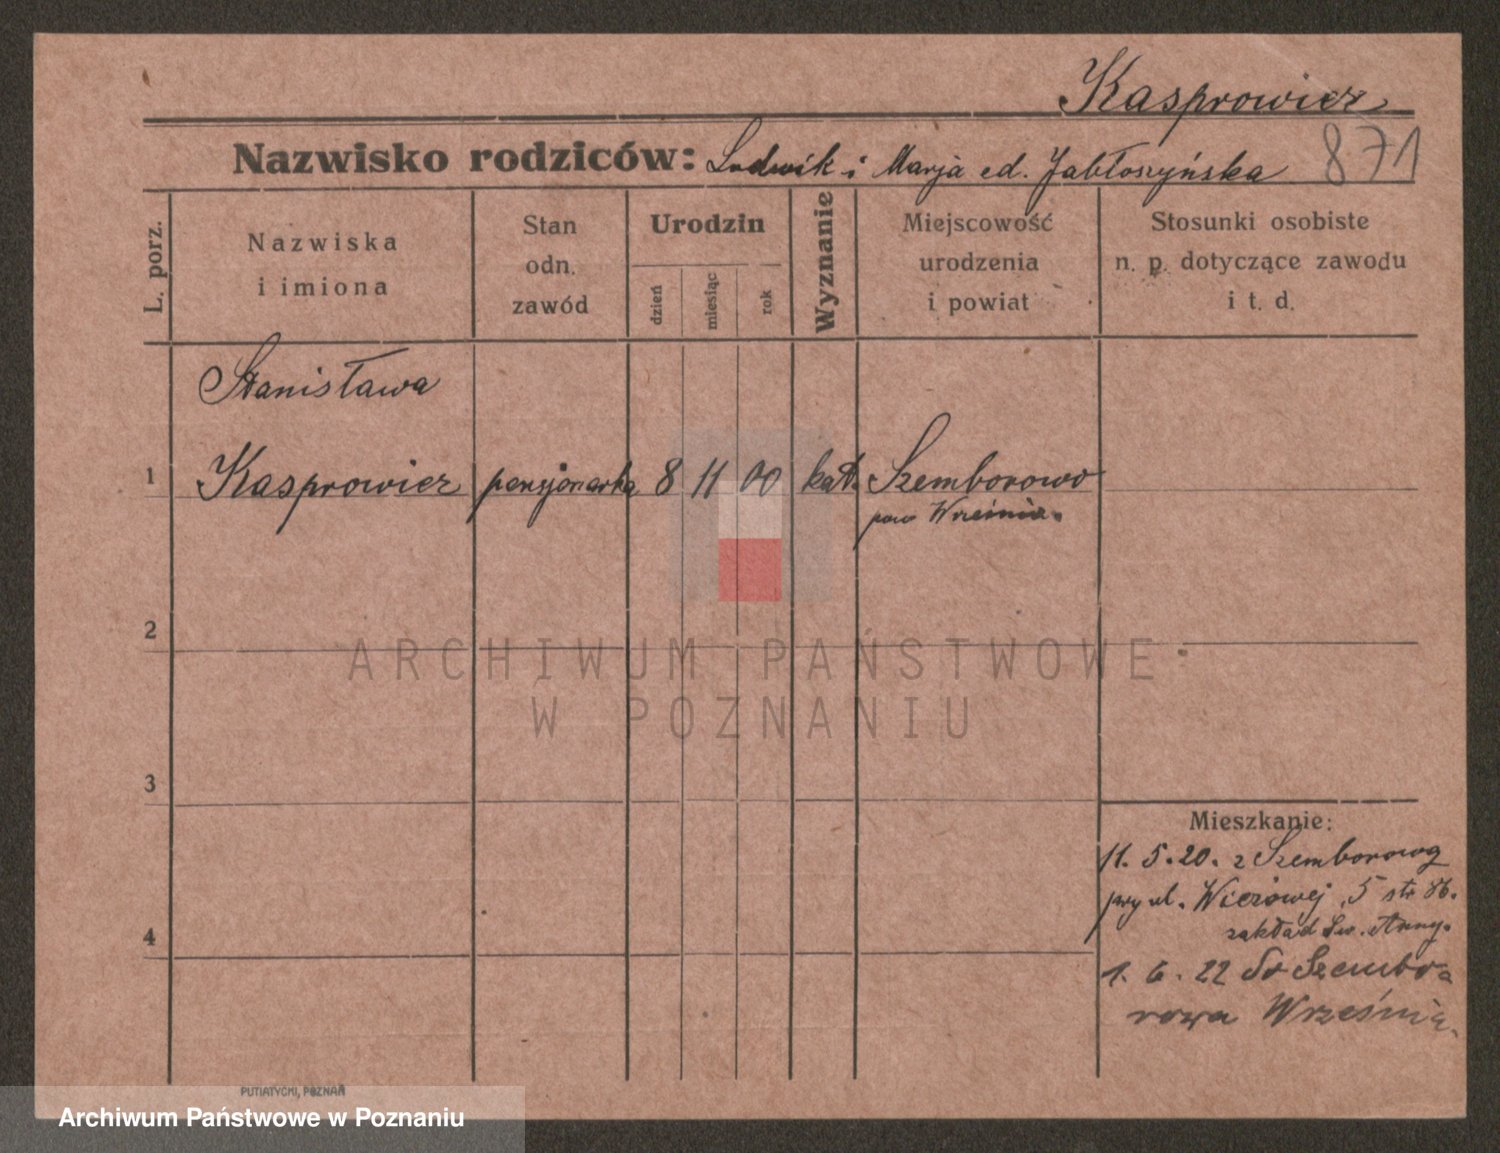 Kasprowicz
Nazwisko rodziców: Ludwik i Marja ed. Jabłoszyńska 871
L. porz.
Nazwiska
i imiona
Stan
odn.
zawód
Urodzin
dzień
miesiąc
rok
Wyznanie
Miejscowość
urodzenia
i powiat
Stosunki osobiste
n. p. dotyczące zawodu
i t. d.
Stanisława
1 Kasprowicz pensjonarka 8 11 00 kat. Szemborowo
pow Września.
2
ARCHIWUM PAŃSTWOWE
W POZNANIU
3
Mieszkanie:
11. 5. 20. z Szemborowo
przy ul. Wieżowej 5 str 86.
zakład Św. Anny.
4
1. 6. 22 do Szembo-
rowa Września.
PUTIATYCKI, POZNAŃ
Archiwum Państwowe w Poznaniu